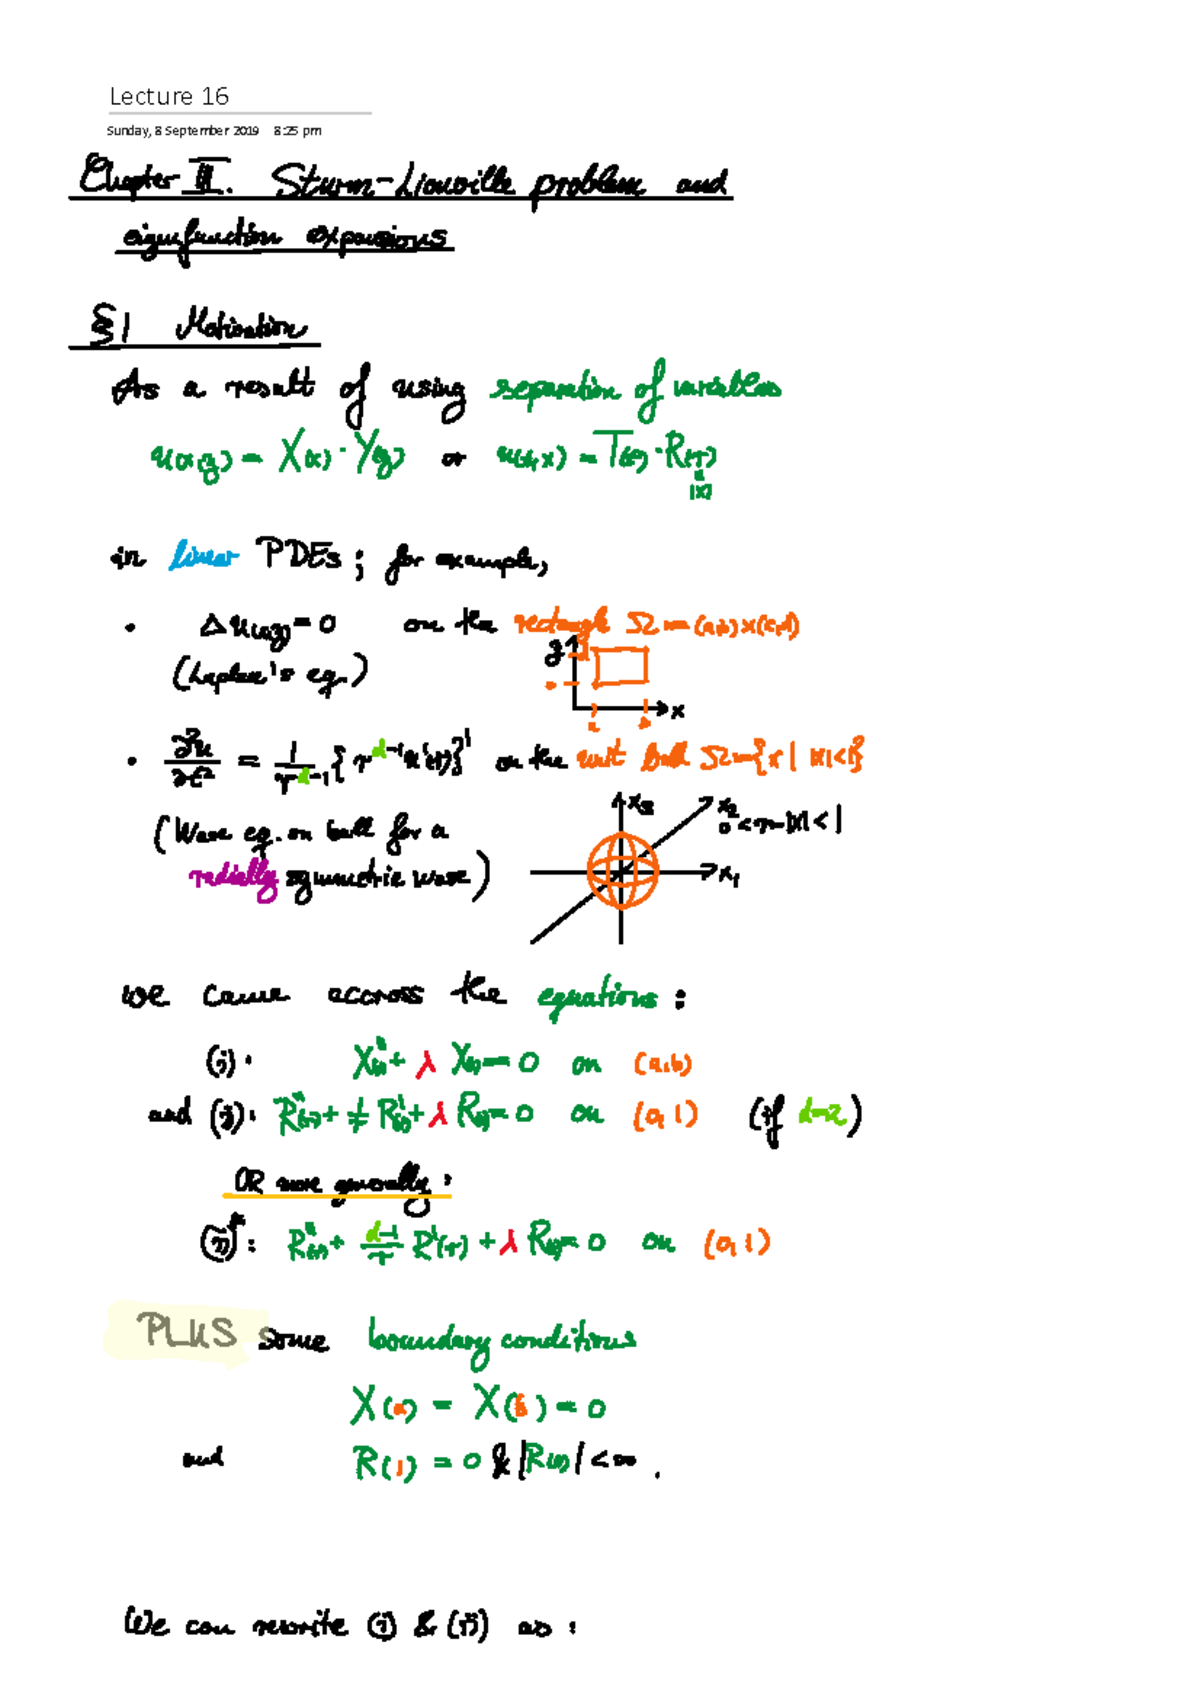 Lecture 16
Sunday, 8 September 2019 8:25 pm
Chapter III. Sturm-Liouville problem and
eigenfunction expansions
§1 Motivation
As a result of using separation of variables
u(x,y) = X(x) · Y(y) or u(t,x) = T(t) · R(r)
|x|
in linear PDEs ; for example,
• Δu(x,y) = 0 on the rectangle Ω = (a,b)×(c,d)
(Laplace's eq.)
y d c a b x
• ∂²u/∂t² = 1/r^{d-1} {r^{d-1} u'(r)}' on the unit ball Ω={x | |x|<1}
(Wave eq. on ball for a
radially symmetric wave)
x₃ x₂ x₁
0<r=|x|<1
we came accross the equations :
(i): X''(x) + λ X(x) = 0 on (a,b)
and (ii): R''(r) + 1/r R'(r) + λ R(r) = 0 on (0,1) (if d=2)
OR more generally :
(ii)*: R''(r) + d-1/r R'(r) + λ R(r) = 0 on (0,1)
PLUS some boundary conditions
X(a) = X(b) = 0
and R(1) = 0 & |R(0)| < ∞ .
We can rewrite (i) & (ii) as :